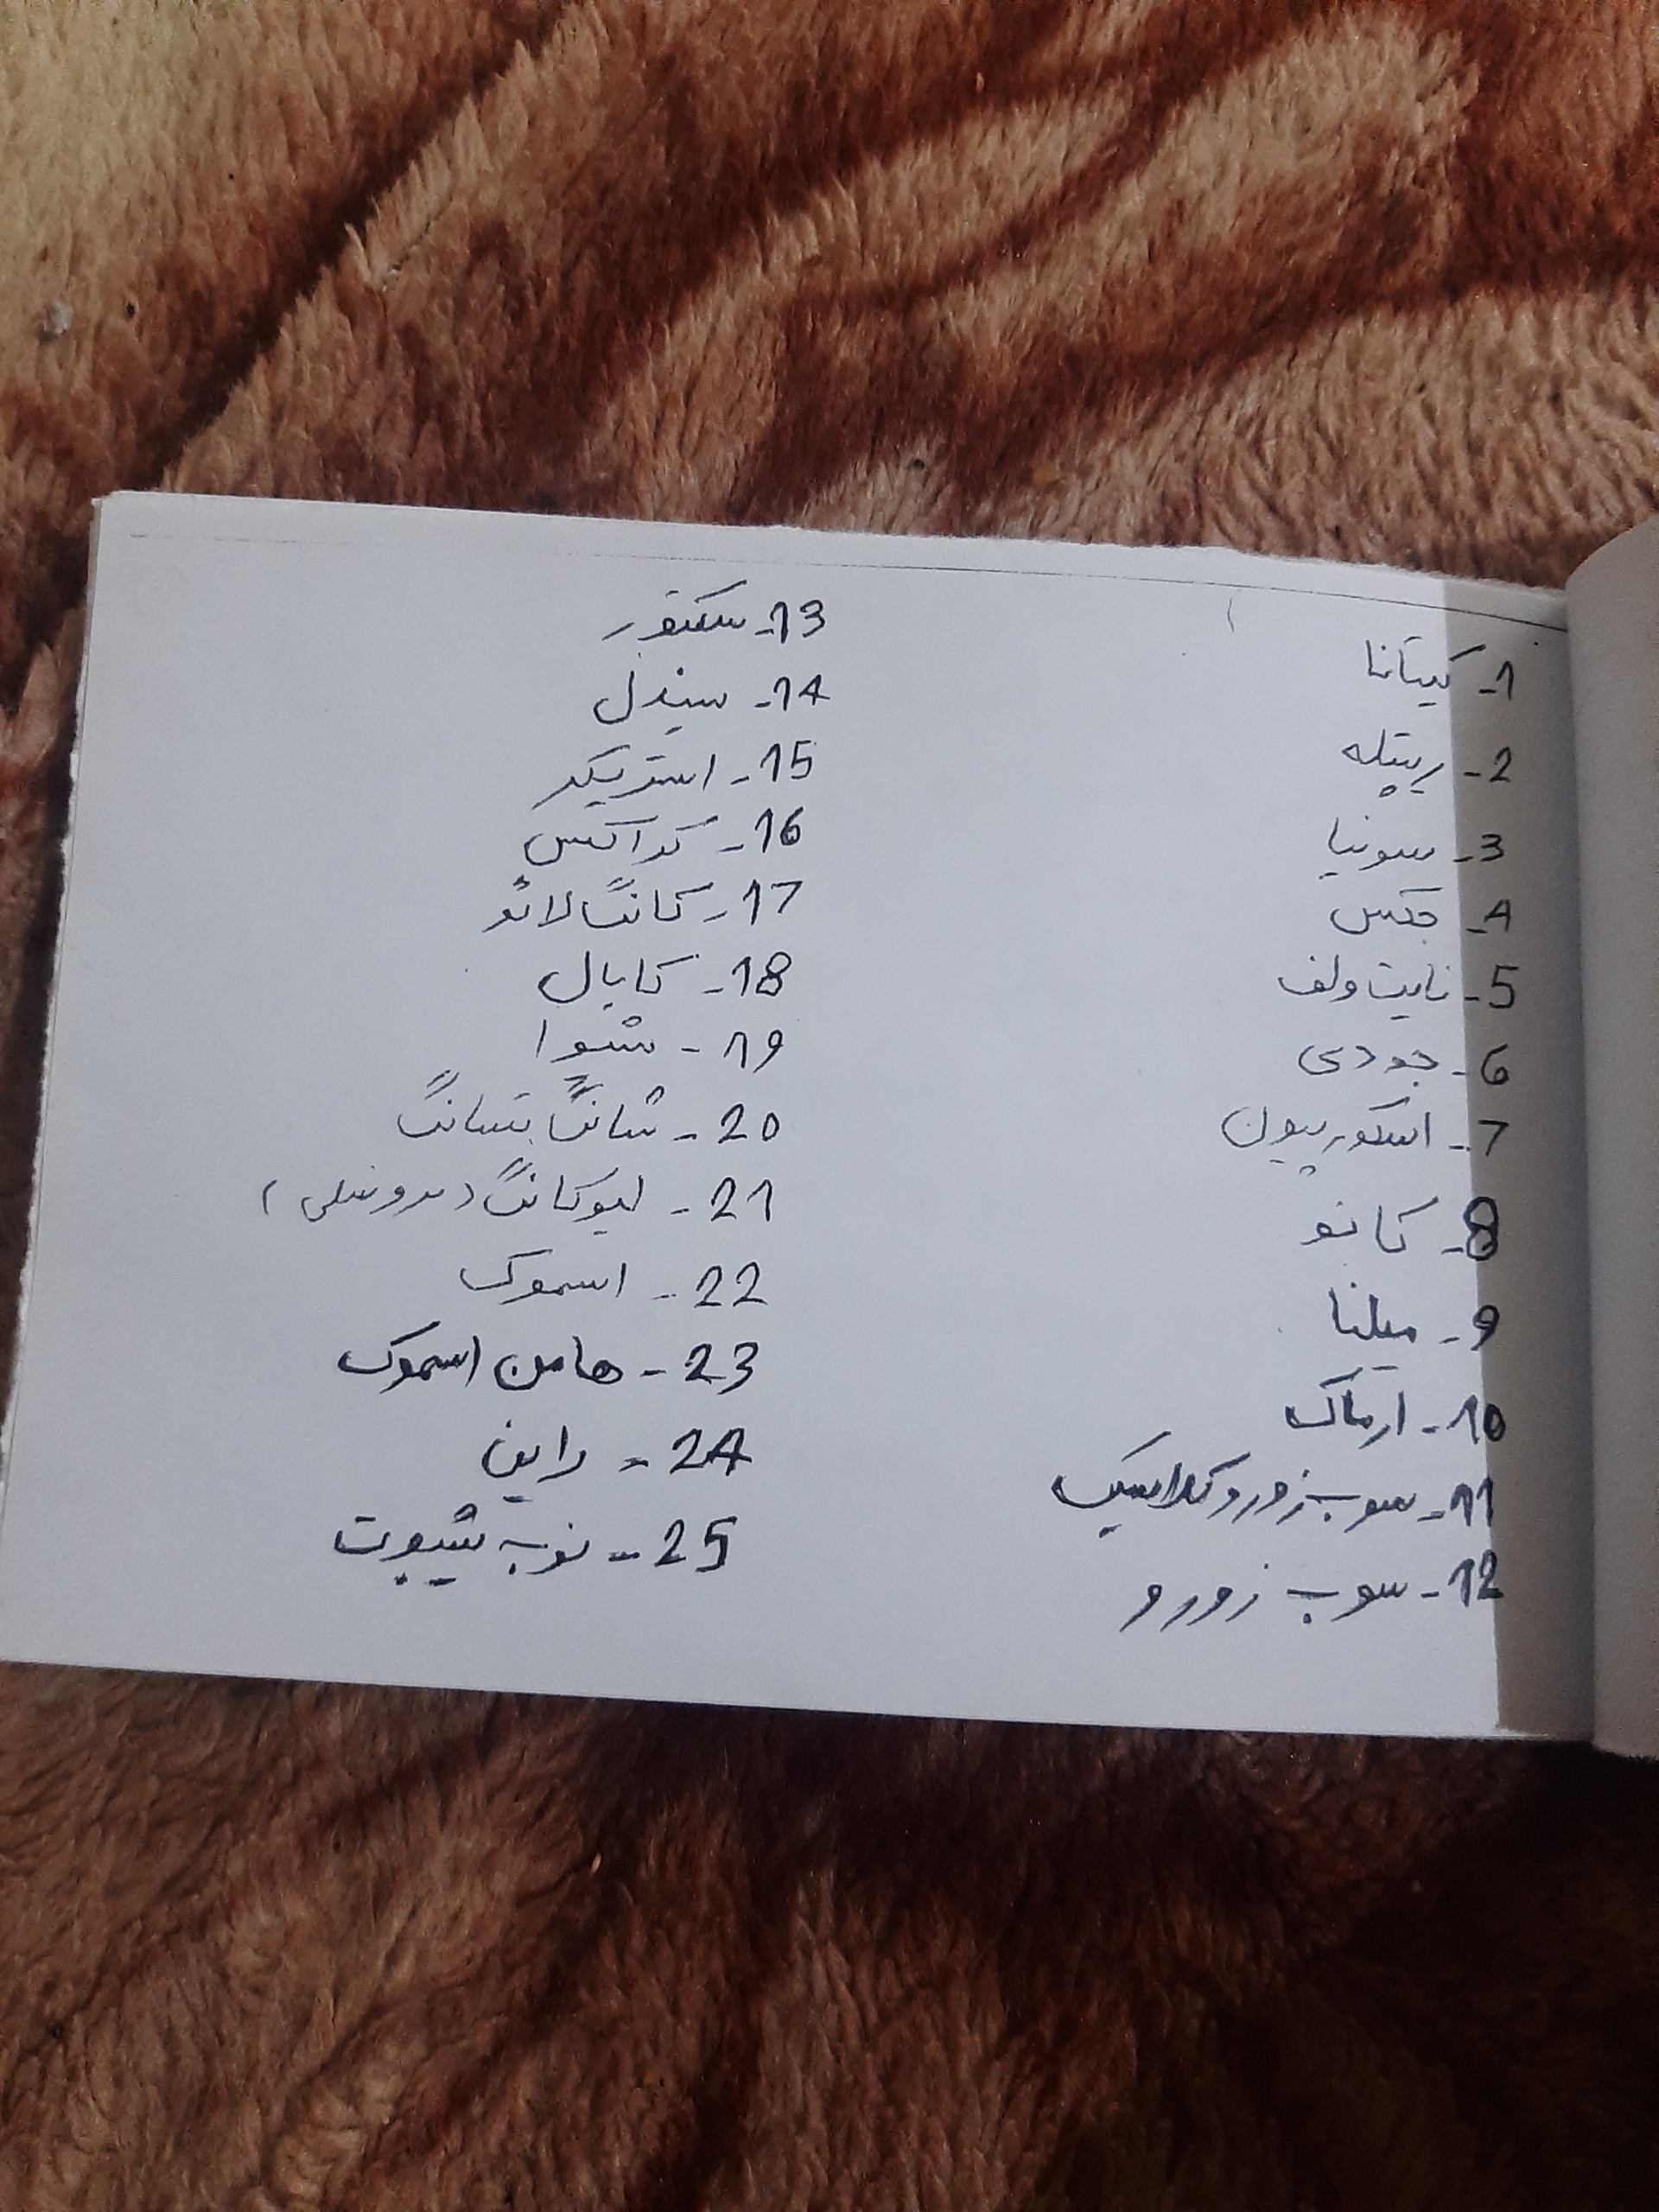 1- کیتانا
2- ریپتله
3- سونیا
4- جکس
5- نایت ولف
6- جودی
7- اسکورپیون
8- کانو
9- میلنا
10- ارماک
11- سوب زورو کلاسیک
12- سوب زورو
13- سکتور
14- سیندل
15- استریکر
16- کراکس
17- کانگ لائو
18- کابال
19- شیوا
20- شانگ تسانگ
21- لیوکانگ (بروسلی)
22- اسموک
23- هامن اسموک
24- راین
25- نوب شیبوت